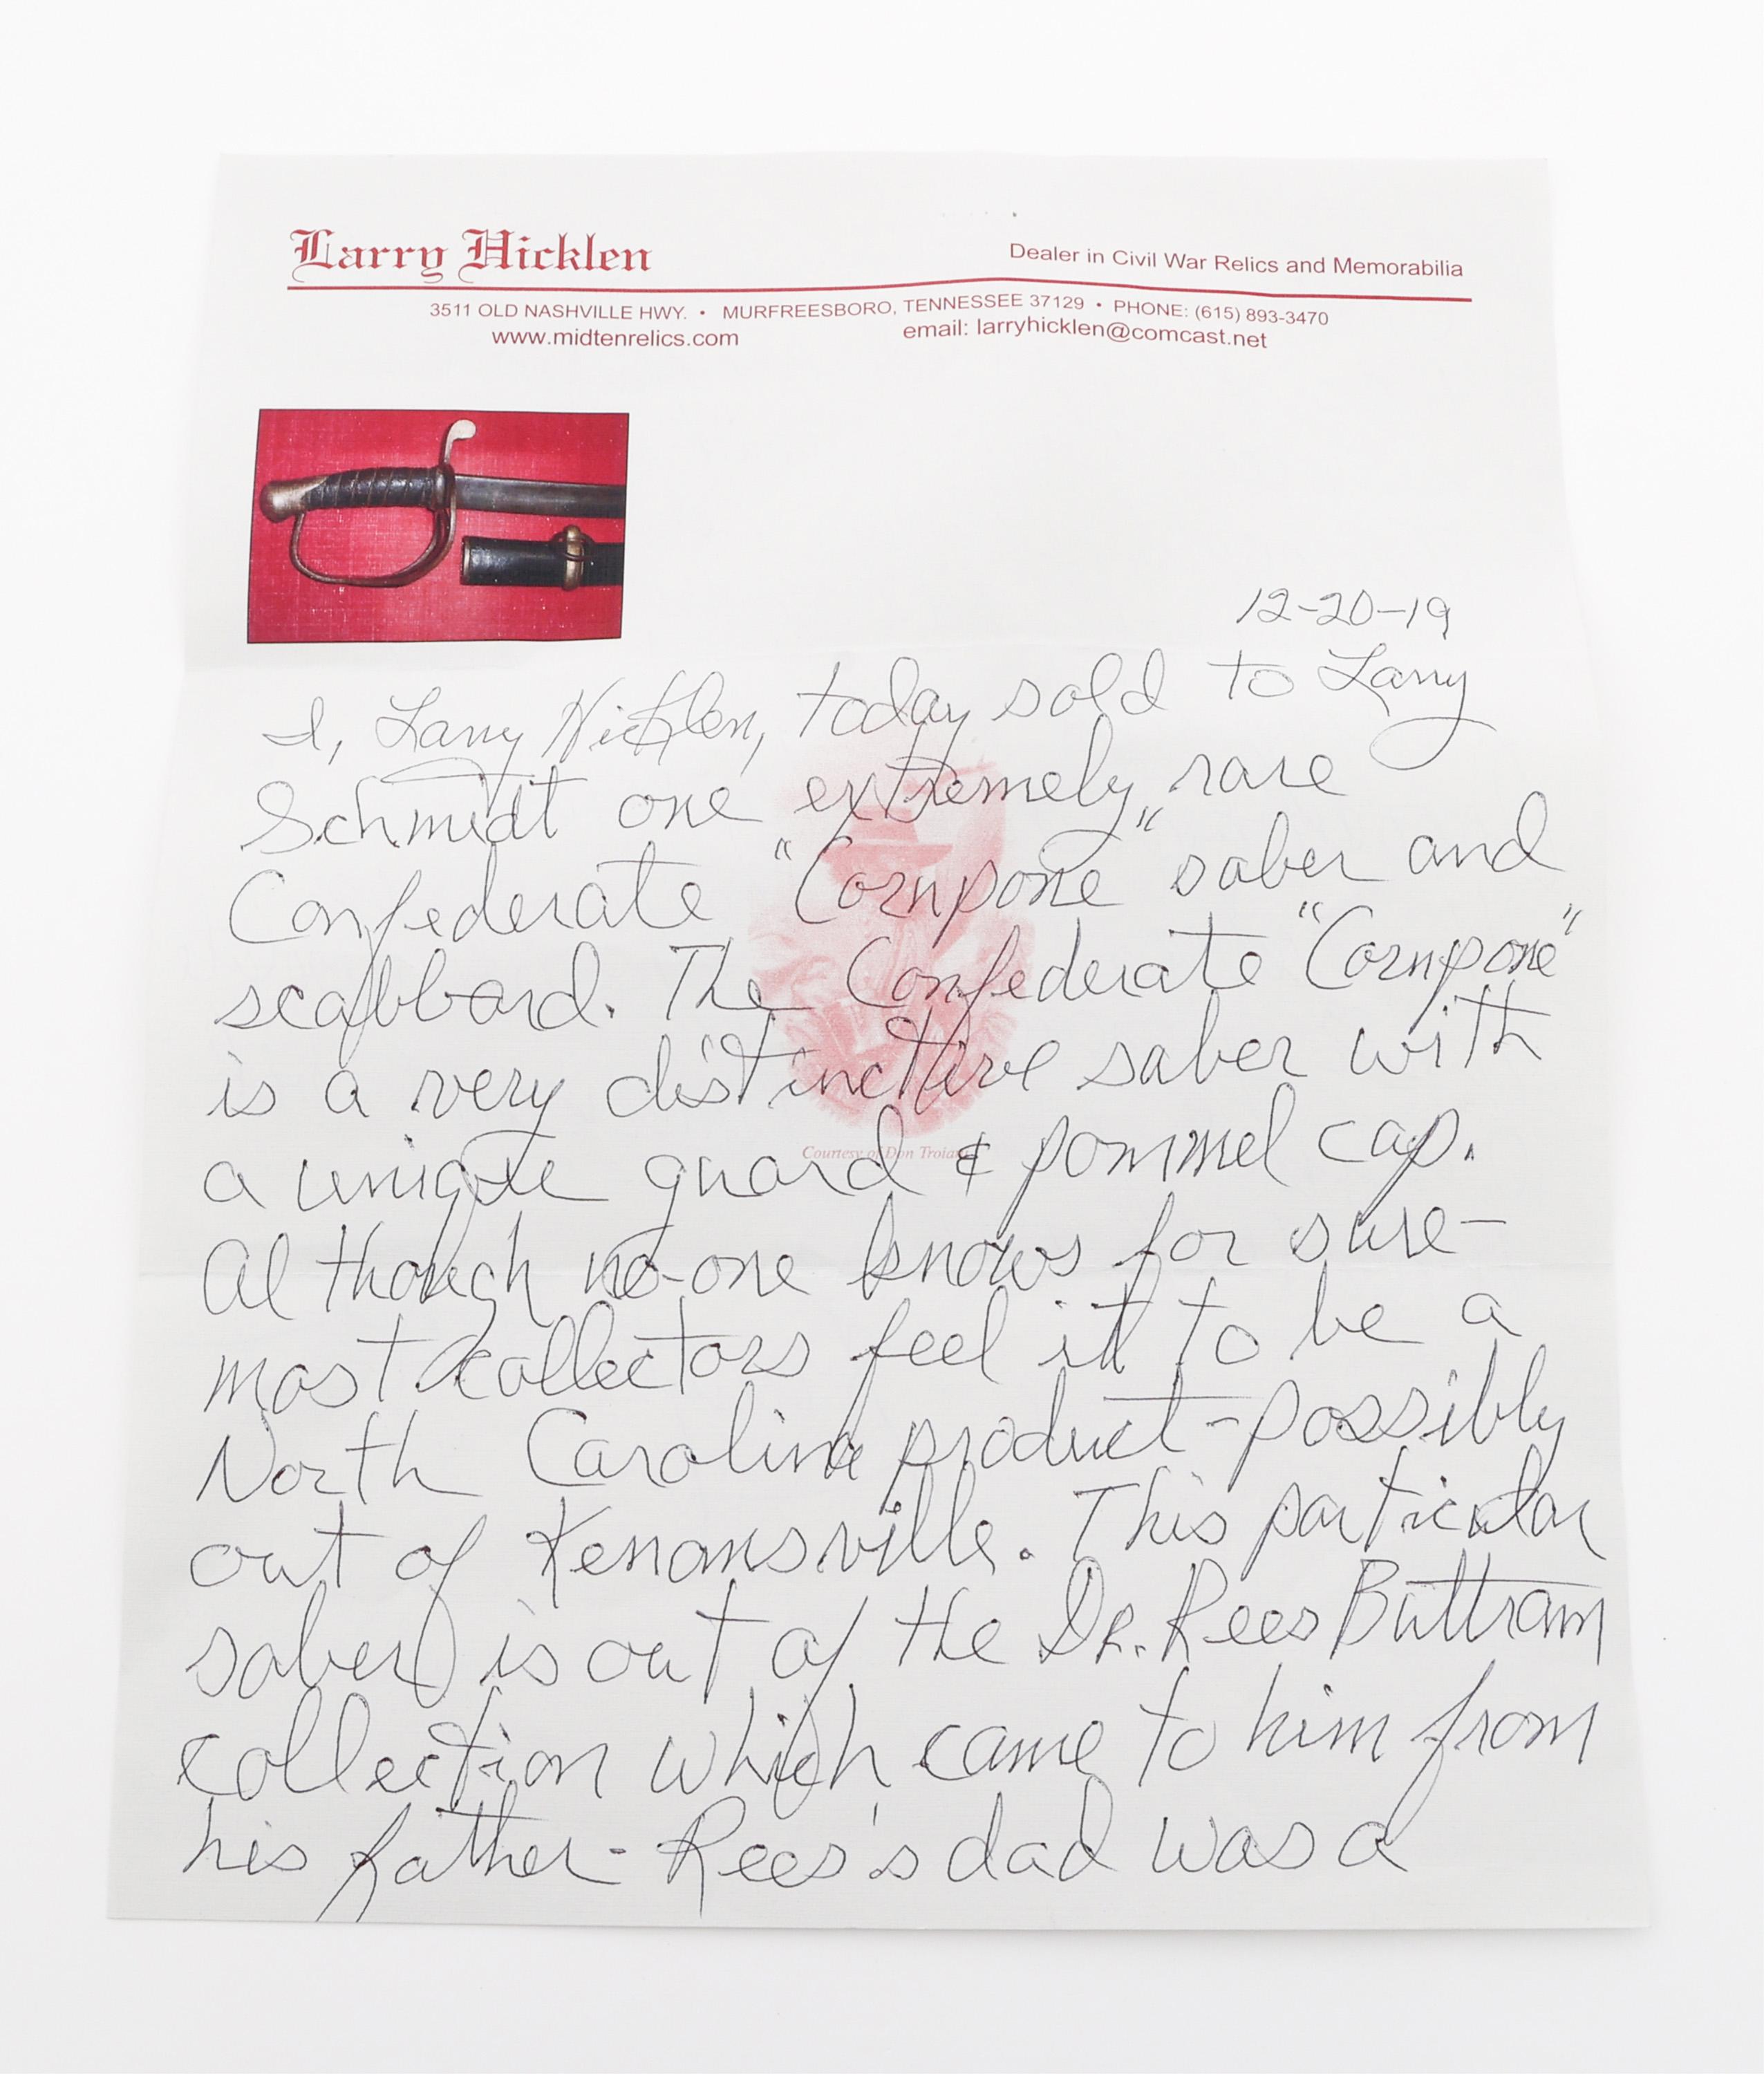 Larry Hicklen
Dealer in Civil War Relics and Memorabilia
3511 OLD NASHVILLE HWY. • MURFREESBORO, TENNESSEE 37129 • PHONE: (615) 893-3470
www.midtenrelics.com email: larryhicklen@comcast.net
12-20-19
I, Larry Hicklen, today sold to Larry
Schmidt one extremely rare
Confederate "Cornpone" saber and
scabbard. The Confederate "Cornpone"
is a very distinctive saber with
a unique guard & pommel cap.
Courtesy of Don Troiani
Although no-one knows for sure-
most collectors feel it to be a
North Carolina product-possibly
out of Kenansville. This particular
saber is out of the Dr. Rees Buttram
collection which came to him from
his father- Rees's dad was a